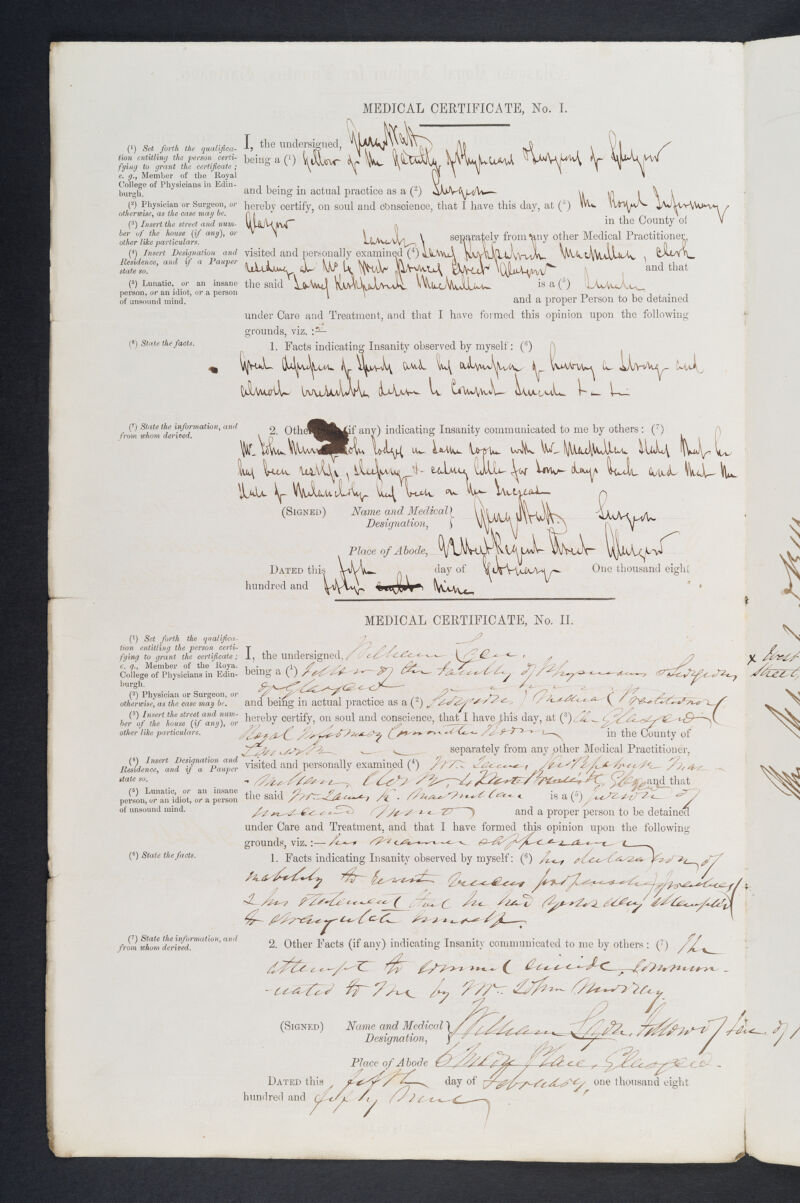 MEDICAL CERTIFICATE, No. I.
(¹) Set forth the qualifica-
tion entitling the person certi-
fying to grant the certificate;
e. g., Member of the Royal
College of Physicians in Edin-
burgh.
(²) Physician or Surgeon, or
otherwise, as the case may be.
(³) Insert the street and num-
ber of the house (if any), or
other like particulars.
(⁴) Insert Designation and
Residence, and if a Pauper
state so.
(⁵) Lunatic, or an insane
person, or an idiot, or a person
of unsound mind.
I, the undersigned, George Watt
being a (¹) Fellow of the Faculty of Physicians & Surgeons of Glasgow
and being in actual practice as a (²) Surgeon
hereby certify, on soul and conscience, that I have this day, at (³) the Royal Infirmary
Glasgow in the County of
Lanark separately from any other Medical Practitioner,
visited and personally examined (⁴) James Kirkpatrick MacMillan, Clerk
residing at No 4 West Princes Street Glasgow and that
the said James Kirkpatrick MacMillan is a (⁵) Lunatic
and a proper Person to be detained
under Care and Treatment, and that I have formed this opinion upon the following
grounds, viz.:—
(⁶) State the facts.
1. Facts indicating Insanity observed by myself: (⁶)
Great depression of Spirits and his admission of having a Strong and
almost irresistible desire to Commit Suicide
(⁷) State the information, and
from whom derived.
2. Other (if any) indicating Insanity communicated to me by others: (⁷)
Mr John who lodges in same room with Mr MacMillan States that he
has been restless, sleeping & eating little for some days back and that the
State of Melancholy has been on the Increase
(SIGNED) Name and Medical Designation, George Watt Surgeon
Place of Abode, 92 West Regent Street Glasgow
DATED this fifth day of February One thousand eight
hundred and fifty eight nine
MEDICAL CERTIFICATE, No. II.
(¹) Set forth the qualifica-
tion entitling the person certi-
fying to grant the certificate;
e. g., Member of the Roya.
College of Physicians in Edin-
burgh.
(²) Physician or Surgeon, or
otherwise, as the case may be.
(³) Insert the street and num-
ber of the house (if any), or
other like particulars.
(⁴) Insert Designation and
Residence, and if a Pauper
state so.
(⁵) Lunatic, or an insane
person, or an idiot, or a person
of unsound mind.
I, the undersigned, William Lyon.
being a (¹) Fellow of the Faculty of Physicians & Surgeons
of Glasgow
and being in actual practice as a (²) Surgeon Medical Practitioner
hereby certify, on soul and conscience, that I have this day, at (³) the Glasgow
Royal Infirmary Committee Room in the County of
Lanark separately from any other Medical Practitioner,
visited and personally examined (⁴) Mr. James Kirkpatrick Mac-
-Millan, Clerk, 4 West Princes St Glasgow and that
the said Mr James K. MacMillan is a (⁵) person of
unsound mind and a proper person to be detained
under Care and Treatment, and that I have formed this opinion upon the following
grounds, viz.:— his manner & appearance
(⁶) State the facts.
1. Facts indicating Insanity observed by myself: (⁶) his declaration of
inability to resist vicious propensities
& his statement that he had yesterday attempted
to strangulate himself.
(⁷) State the information, and
from whom derived.
2. Other Facts (if any) indicating Insanity communicated to me by others: (⁷) The
attempt to commit suicide, commun-
-icated to me by Mr. John
(SIGNED) Name and Medical Designation, William Lyon. Fellow of Fac. of
Place of Abode 6 Place, Glasgow.
DATED this fifth day of February, one thousand eight
hundred and fifty nine
x West
Street